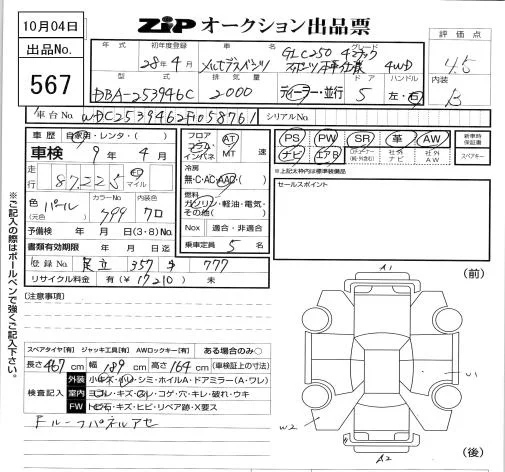 10月04日
ZiP オークション出品票
出品No.
567
評価点
4.5
内装
B
年式 初年度登録 車名 グレード
28年4月 メルセデスベンツ GLC250 4マチック
スポーツ 本革仕様 4WD
型式 排気量 ドア ハンドル
DBA-253946C 2000 ディーラー・並行 5 左・右
車台No. WDC2539462F1058761 シリアルNo.
車歴 自家用・レンタ・( )
車検 9年4月
走行 87,225 km マイル
色(元色) パール カラーNo. 799 内装色 クロ
予備検 年 月 日(3・8)No.
書類有効期限 年 月 日迄
登録No. 足立 357 777
リサイクル料金 有(¥17210) 未
フロア フラット インパネ AT MT 速
冷房 無・C・AC・AAC・( )
燃料 ガソリン・軽油・電気・
その他( )
Nox 適合・非適合
乗車定員 5 名
PS PW SR 革 AW
ナビ エアB 社外ナビ 社外AW
新車時保証書
スペアキー
※上記太枠内は標準装備品
セールスポイント
※ご記入の際はボールペンで強くご記入下さい。
[注意事項]
スペアタイヤ[有] ジャッキ工具[有] AWロックキー[有] ある場合のみ○
長さ467cm 幅189cm 高さ164cm (車検証上の寸法)
検査記入
外装 小キズ・小凹・シミ・ホイルA・ドアミラー(A・ワレ)
室内 ヨゴレ・キズ・スレ・コゲ・穴・キレ・破れ・ウキ
FW トビ石・キズ・ヒビ・リペア跡・X要ス
Fルーフパネルアセ
(前)
A1
U1
W2
A2
(後)